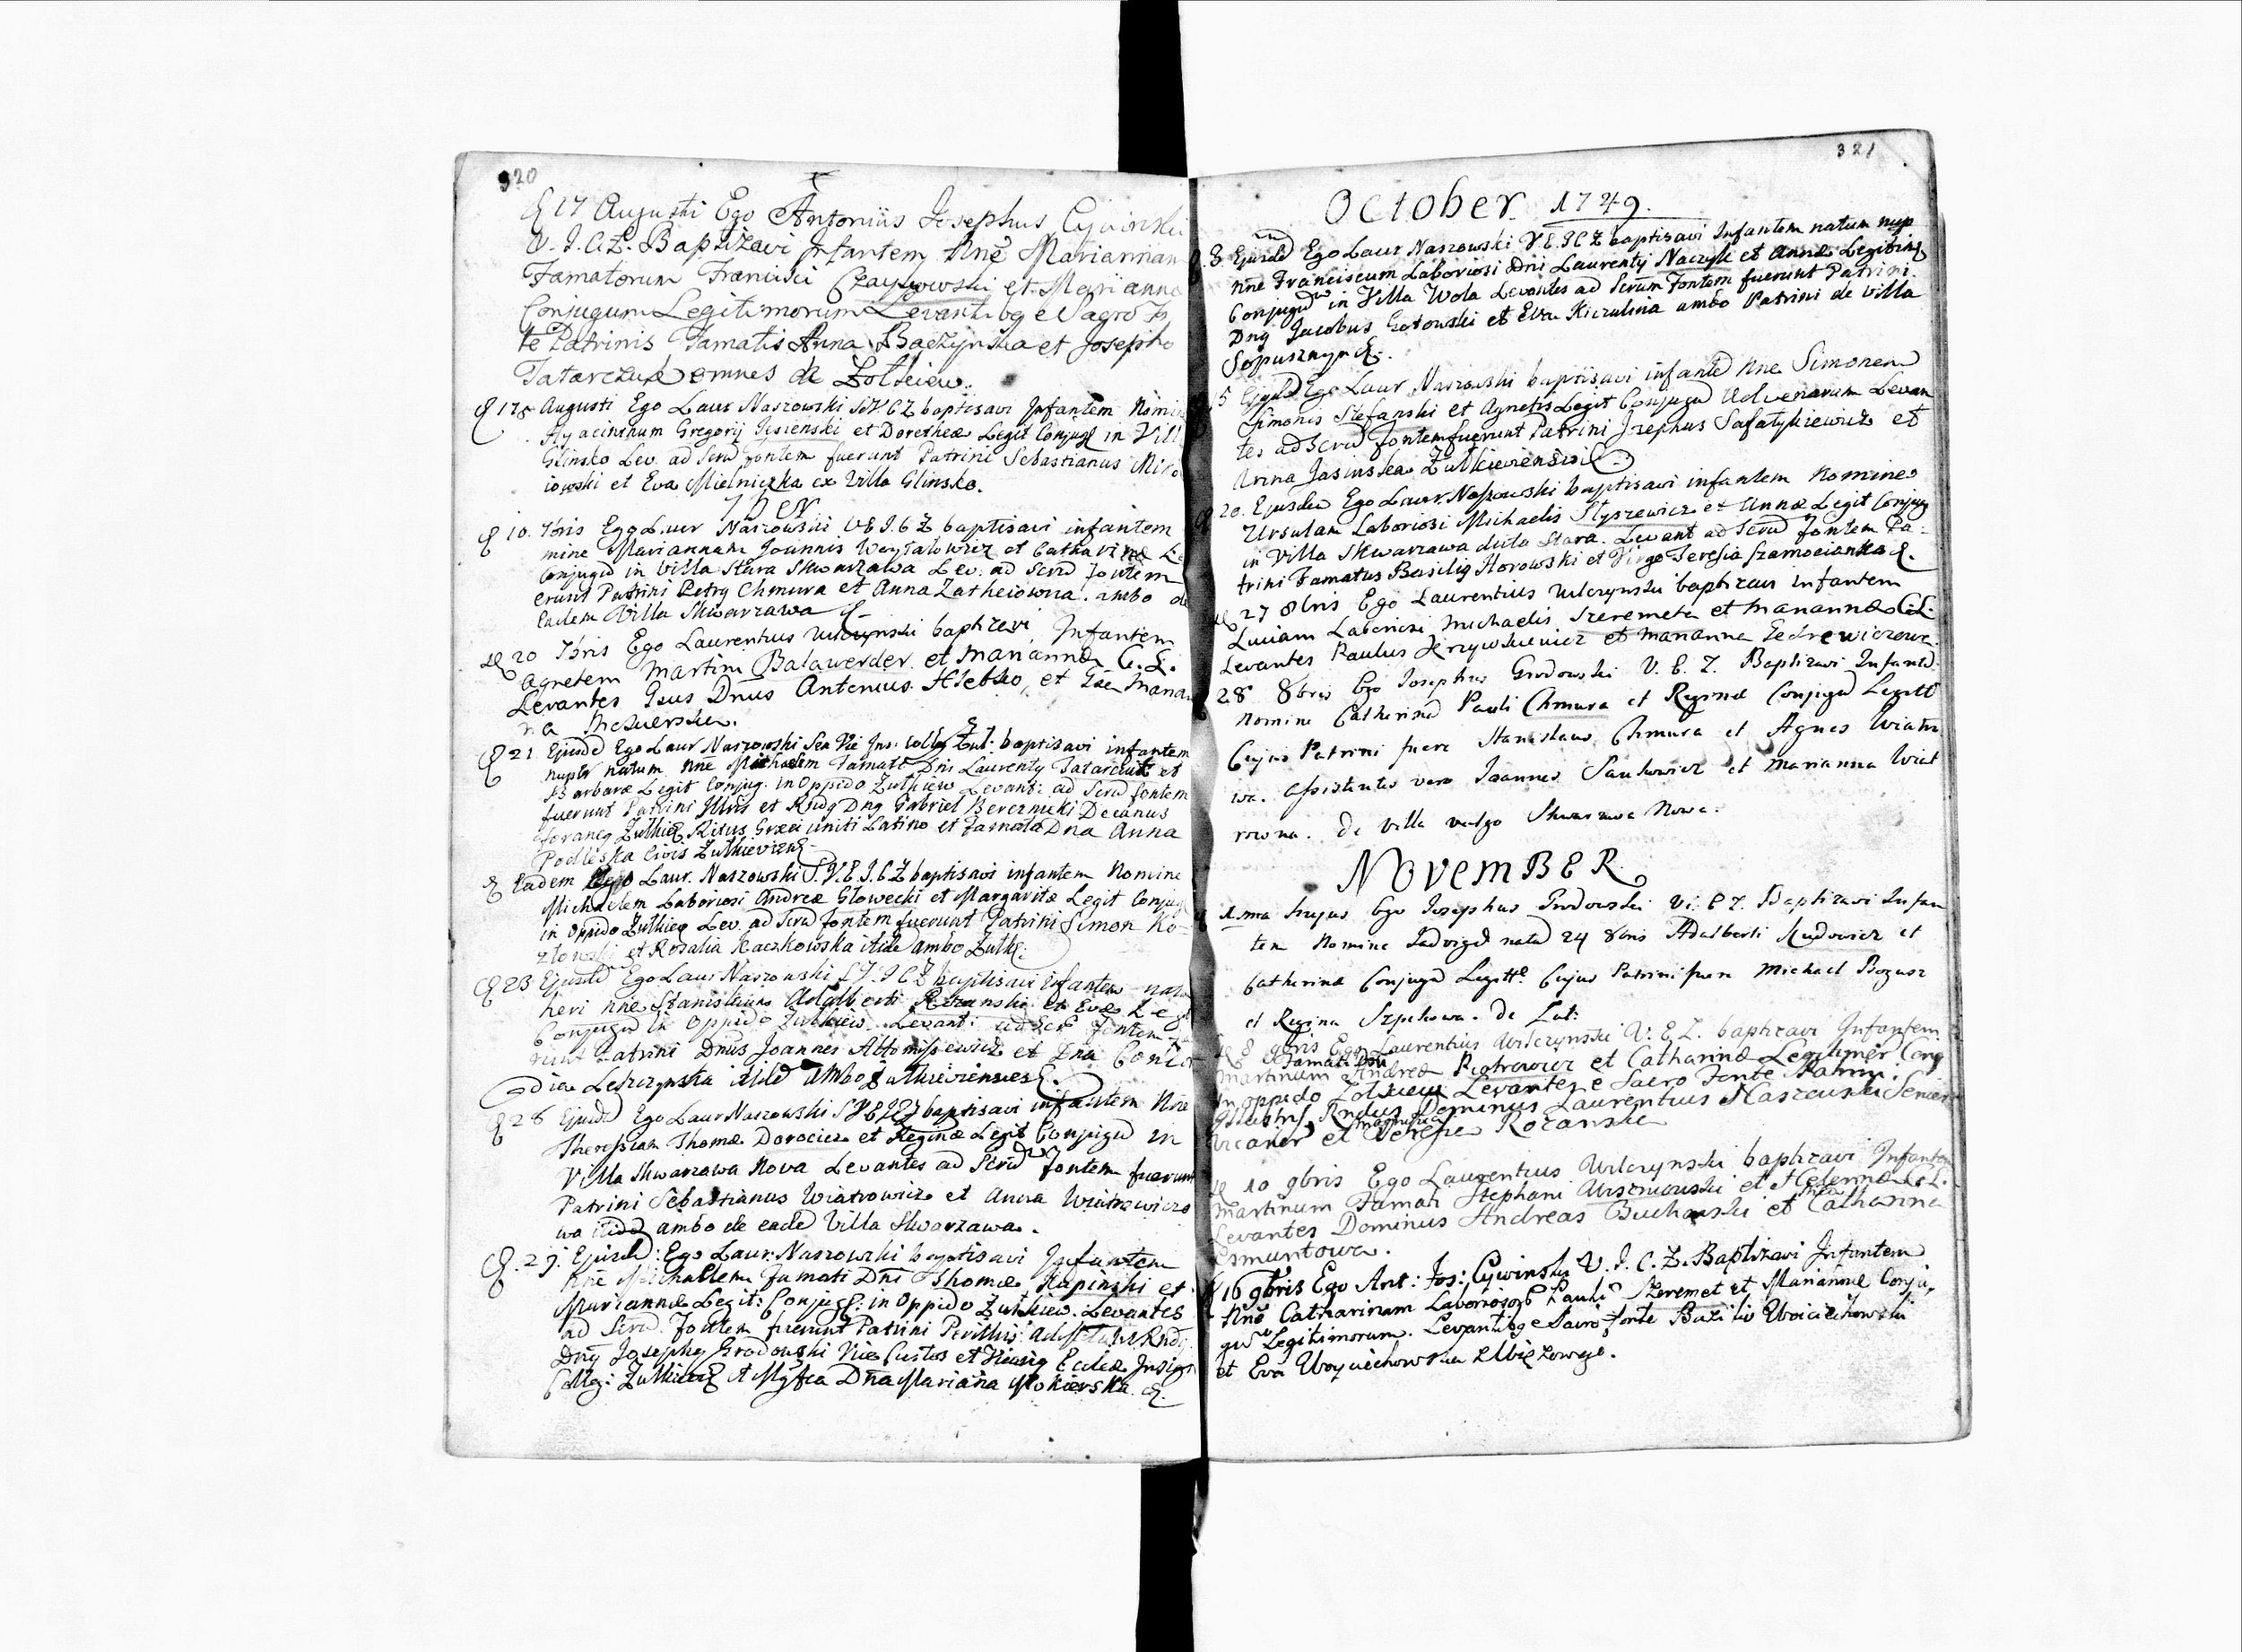 320
17 Augusti Ego Antonius Josephus Cywinski
V. I. C. Z. Baptizavi Infantem Nne Mariannam
Famatorum Francisci et Marianna
Conjugum Legitimorum Levantibg e Sagro
te Patrinis Famatis Anna Baczynska et Josepho
Tatarczuk omnes de Zolkiew.
Augusti Ego Laur Naszowski baptisavi Infantem
Hyacinthum Gregorij Jesienski et Dorotheæ Legit Conjug in
Glinsko Lev. ad Scrū fontem fuerunt Patrini Sebastianus
iowski et Eva Mielniczka ex Villa Glinsko.
10. 7bris Ego Laur Naszowski V E I C Z baptisavi infantem
mine Mariannam Joannis et Catharinæ
Conjugū in Villa Stara Skwarzawa Lev: ad Scrū fontem
erunt Patrini Petrg Chmura et Anna ambo de
Eadem Villa Skwarzawa
20 7bris Ego Laurentius Wilczynski baptizavi Infantem
Agnetem Martini Balawerder et Mariannæ C. L.
Levantes Gsus Dnus Antonius Hlebko, et Gsa
21 Ejusdē Ego Laur Naszowski baptisavi infantem
nupēr natum Nne Michaelem Famati Dni Laurenty Tatarczuk et
Barbaræ Legit Conjug. in Oppido Zulkiew Levant: ad Scrū fontem
fuerunt Patrini Illris et Rndg Dng Gabriel Decanus
foraneg Ritus Græci uniti Latino et Famata Dna Anna
Podleska
Eadem Ego Laur. Naszowski S. V. E. I. C Z baptisavi infantem Nomine
Michaelem Laboriosi Andreæ Glowecki et Margaritæ Legit Conjug
in Oppido Zulkiew Lev. ad Scrū fontem fuerunt Patrini Simon Ko-
et Rosalia Kaczkowska ambo Zulk:
23 Ejusdē Ego Laur Naszowski baptisavi infantem
heri nne Stanislaum Adalberti et Evæ
Conjugū in Oppido Zulkiew. Levant: ad fontem
Patrini Dnus Joannes et Dna
Leszczynska ambo Zulkievienses
28 Ejusdē Ego Laur Naszowski baptisavi infantem Nne
Theressiam Thomæ Dorocicz et Reginæ Legit Conjugū in
Villa Skwarzawa Nova Levantes ad Scrū fontem fuerunt
Patrini Sebastianus Wiatrowicz et Anna Wiatrowiczo
wa ambo de eadē Villa Skwarzawa.
29. Ejusdē: Ego Laur: Naszowski baptisavi Infantem
nne Michaelem Famati Dni Thomæ Kapinski et
Mariannæ Legit: Conjug: in Oppido Zulkiew. Levantes
ad Scrū. fontem fuerunt Patrini
Dng Josephg Grodowski Vice Custos et Vicarig Ecclæ Insign
Colleg: et Dna Mariana Mokierska
321
October 1749.
8. Ejusdē Ego Laur Naszowski V E I C Z baptisavi Infantem natum nup
nne Franciscum Laboriosi Dni Laurenty Naczyk et Annæ Legitimg
Conjugū in Villa Wola Levantes ad Scrum Fontem fuerunt Patrini
Dng Jacobus Gotowski et Eva Kiczulina ambo Patrini de Villa
15 Ejusdē Ego Laur Naszowski baptisavi infantē nne Simonem
Simonis Stefanski et Agnetis Legit Conjugū Advenarum Levan
tes ad Scrū fontem fuerunt Patrini Josephus Safatykiewicz et
Anna Jasinska Zulkieviensis
20. Ejusdē Ego Laur. Naszowski baptisavi infantem Nomine
Ursulam Laboriosi Michaelis et Annæ Legit Conjug
in Villa Skwarzawa dicta Stara. Levant ad Scrū fontem Pa-
trini Famatus Basilig Horowski et Virgo Teresia
27 8bris Ego Laurentius Wilczynski baptizavi Infantem
Luciam Laboriosi Michaelis Szeremeta et Mariannæ C. L.
Levantes Paulus et Marianna
28 8bris Ego Josephus Grodowski V. E. Z. Baptizavi Infantē
nomine Catherinā Pauli Chmura et Reginæ Conjugū Legitt
Cujus Patrini fuere Stanislaus Chmura et Agnes Wiatro
wa. Assistentes vero Joannes Sankowicz et Marianna Wiat
rowna. de Villa vulgo Skwarzawa Nowa.
November
1ma hujus Ego Josephus Grodowski V. E Z. Baptizavi Infan
tem nomine Jadvigē natā 24 8bris Adalberti Kudowicz et
Catherinæ Conjugū Legitte Cujus Patrini fuere Michael Bogusz
et Regina Szpakowa. de Zul:
8 9bris Ego Laurentius Wilczynski V. E. Z. baptizavi Infantem
Famati Dni
Martinum Andreæ Piotrowicz et Catharinæ Legitimor Conj
in oppido Zolkiew Levantes e Sacro Fonte Patrini.
Illustris Rndus Dominus Laurentius Naszowski Senior
Vicarior et Magnifica Teresia Rozanska
10 9bris Ego Laurentius Wilczynski baptizavi Infantem
Martinum Famati Stephani et Helennæ C. L.
Levantes Dominus Andreas Buchowski et Catharina
Esmuntowa.
16 9bris Ego Ant: Jos: Cywinski V. I. C. Z. Baptizavi Infantem
Nne Catharinam Pauli Szeremet et Mariannæ Conju-
gū Legitimorum. Levantibg e Sacro fonte Bazilio Woiciechowski
et Eva Woyciechowska